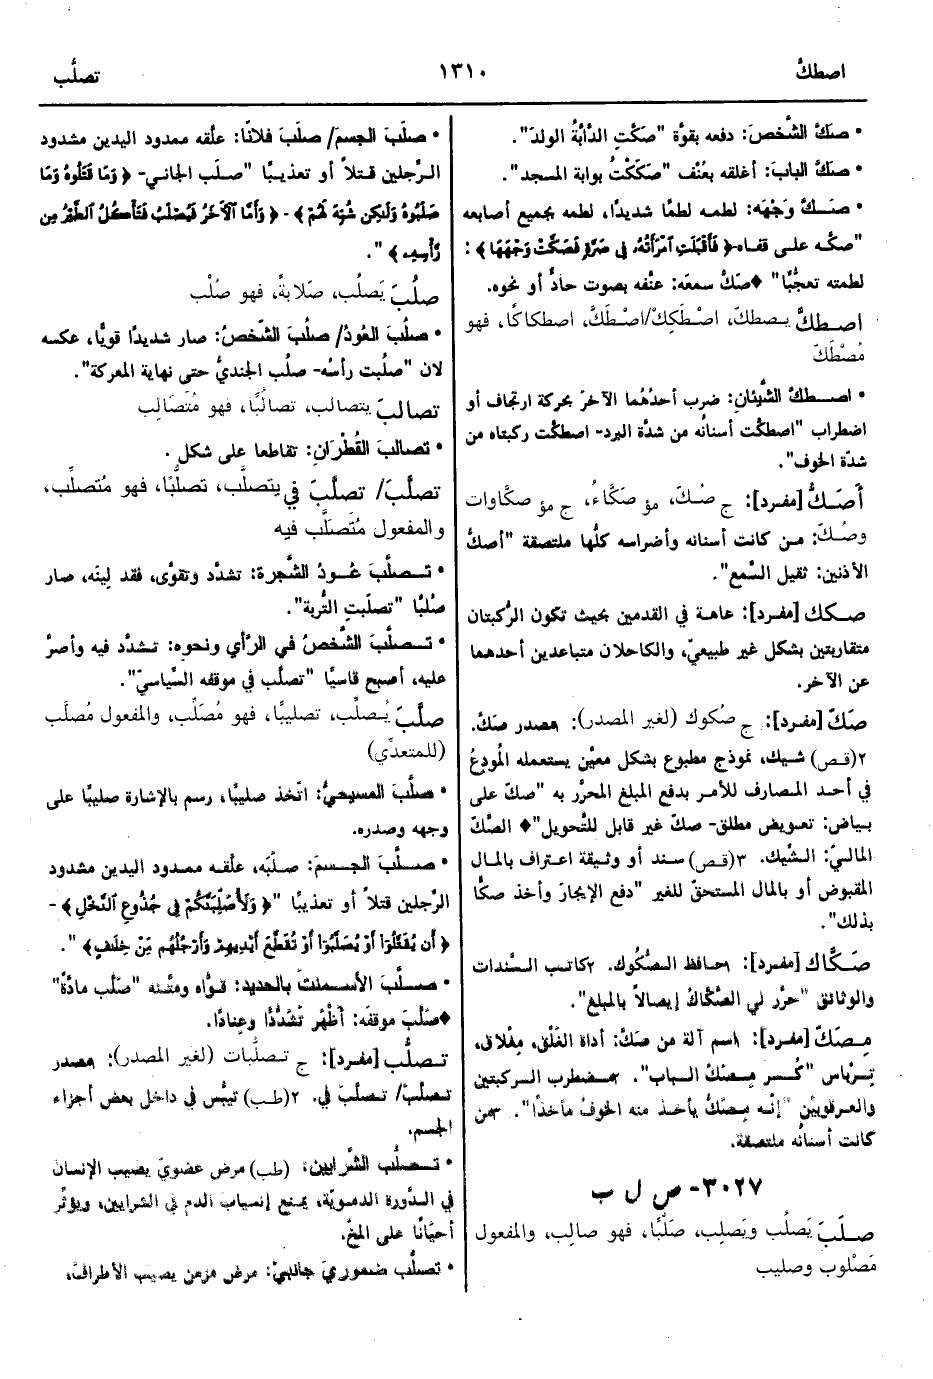 اصطكَّ
١٣١٠
تصلَّب
• صكَّ الشَّخصَ: دفعه بقوّة "صكّتِ الدّابّةُ الولدَ".
• صكَّ البابَ: أغلقه بعُنْف "صكَكْتُ بوابة المسجد".
• صكَّ وَجْهَه: لطمه لطمًا شديدًا، لطمه بجميع أصابعه
"صكّه على قفاه-﴿فَأَقْبَلَتِ امْرَأَتُهُ فِي صَرَّةٍ فَصَكَّتْ وَجْهَهَا﴾:
لطمته تعجُّبًا" ♦صكَّ سمعَه: عنّفه بصوت حادٍّ أو نحوه.
اصطكَّ يصطكّ، اصْطَكِكْ/اصْطَكَّ، اصطكاكًا، فهو
مُصْطَكّ
• اصطكَّ الشَّيئان: ضرب أحدُهُما الآخرَ بحركة ارتجاف أو
اضطراب "اصطكّت أسنانُه من شدّة البرد- اصطكّت ركبتاه من
شدّة الخوف".
أَصَكُّ [مفرد]: ج صُكّ، مؤ صَكَّاءُ، ج مؤ صكّاوات
وصُكّ: من كانت أسنانه وأضراسه كلُّها ملتصقة "أصكُّ
الأذنين: ثقيل السَّمع".
صكك [مفرد]: عاهة في القدمين بحيث تكون الرُّكبتان
متقاربتين بشكل غير طبيعيّ، والكاحلان متباعدين أحدهما
عن الآخر.
صَكّ [مفرد]: ج صُكوك (لغير المصدر): ١مصدر صكَّ.
٢(قص) شيك، نموذج مطبوع بشكل معيّن يستعمله المُودِعُ
في أحد المصارف للأمر بدفع المبلغ المحرَّر به "صكّ على
بياض: تعويض مطلق- صكّ غير قابل للتَّحويل"♦ الصَّكّ
الماليّ: الشّيك. ٣(قص) سند أو وثيقة اعتراف بالمال
المقبوض أو بالمال المستحقّ للغير "دفع الإيجارَ وأخذ صكًّا
بذلك".
صَكَّاك [مفرد]: ١حافظ الصُّكوك. ٢كاتب السَّندات
والوثائق "حرَّر لي الصَّكّاكُ إيصالاً بالمبلغ".
مِصَكّ [مفرد]: ١اسم آلة من صكَّ: أداة الغَلْق، مِغْلاق،
تِرْباس "كُسر مِصَكُّ الباب". ٢مضطرب الركبتين
والعرقوبيْن "إنّه مِصَكٌّ يأخذ منه الخوفُ مأخذًا". ٣من
كانت أسنانُه ملتصقة.
٣٠٢٧- ص ل ب
صلَبَ يَصلُب ويَصلِب، صَلْبًا، فهو صالِب، والمفعول
مَصْلوب وصليب
• صلَب الجسمَ/ صلَب فلانًا: علّقه ممدود اليدين مشدود
الرِّجلين قتلاً أو تعذيبًا "صلَب الجاني- ﴿وَمَا قَتَلُوهُ وَمَا
صَلَبُوهُ وَلَكِن شُبِّهَ لَهُمْ﴾- ﴿وَأَمَّا الْآخَرُ فَيُصْلَبُ فَتَأْكُلُ الطَّيْرُ مِن
رَّأْسِهِ﴾".
صلُبَ يَصلُب، صَلابةً، فهو صُلْب
• صلُبَ العُودُ/ صلُبَ الشَّخصُ: صار شديدًا قويًّا، عكسه
لان "صلُبت رأسُه- صلُب الجنديُّ حتى نهاية المعركة".
تصالبَ يتصالب، تصالُبًا، فهو مُتَصالِب
• تصالب القُطْرَان: تقاطعا على شكل .
تصلَّبَ/ تصلَّبَ في يتصلَّب، تصلُّبًا، فهو مُتصلِّب،
والمفعول مُتَصلَّب فيه
• تصلَّبَ عُودُ الشَّجرة: تشدّد وتقوّى، فقد لِينَه، صار
صُلبًا "تصلّبتِ التُّربة".
• تصلَّبَ الشَّخصُ في الرَّأي ونحوه: تشدّد فيه وأصرّ
عليه، أصبح قاسيًا "تصلّب في موقفه السِّياسيّ".
صلَّبَ يُصلِّب، تصليبًا، فهو مُصَلِّب، والمفعول مُصَلَّب
(للمتعدِّي)
• صلَّبَ المسيحيُّ: اتّخذ صليبًا، رسم بالإشارة صليبًا على
وجهه وصدره.
• صلَّبَ الجسمَ: صلَبَه، علّقه ممدود اليدين مشدود
الرِّجلين قتلاً أو تعذيبًا "﴿وَلَأُصَلِّبَنَّكُمْ فِي جُذُوعِ النَّخْلِ﴾-
﴿أَن يُقَتَّلُوا أَوْ يُصَلَّبُوا أَوْ تُقَطَّعَ أَيْدِيهِمْ وَأَرْجُلُهُم مِّنْ خِلَافٍ﴾".
• صلَّبَ الأسمنتَ بالحديد: قوّاه ومتّنه "صلّب مادّةً"
♦صَلَّبَ موقفَه: أَظْهَرَ تَشَدُّدًا وعِنادًا.
تصلُّب [مفرد]: ج تصلُّبات (لغير المصدر): ١مصدر
تصلّبَ/ تصلّبَ في. ٢(طب) تيبُّس في داخل بعض أجزاء
الجسم.
• تصلُّب الشَّرايين: (طب) مرض عضويّ يصيب الإنسان
في الدَّورة الدمويَّة، يمنع إنسياب الدم في الشرايين، ويؤثِّر
أحيانًا على المخّ.
• تصلُّب ضموريّ جانبيّ: مرض مزمن يصيب الأطراف،